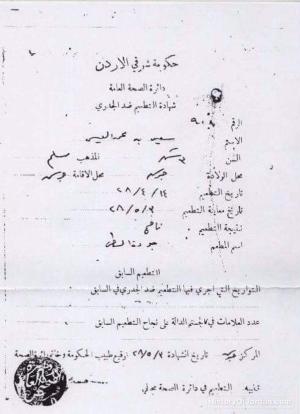 حكومة شرقي الاردن
دائرة الصحة العامة
شهادة التطعيم ضد الجدري
الرقم
الاسم سعيد بن محمد
السن المذهب مسلم
محل الولادة جرش محل الاقامة جرش
تاريخ التطعيم ١٤ / ٤ / ٢٨
تاريخ معاينة التطعيم ٣ / ٥ / ٢٨
نتيجة التطعيم ناجح
اسم المطعم جودة
التطعيم السابق
التواريخ التي اجري فيها التطعيم ضد الجدري في السابق
عدد العلامات في الجسم الدالة على نجاح التطعيم السابق
المركز جرش تاريخ الشهادة ٣ / ٥ / ٢٨ توقيع طبيب الحكومة وخاتم دائرة الصحة
تنبيه التطعيم في دائرة الصحة مجاني
HistoryOfJordan.com